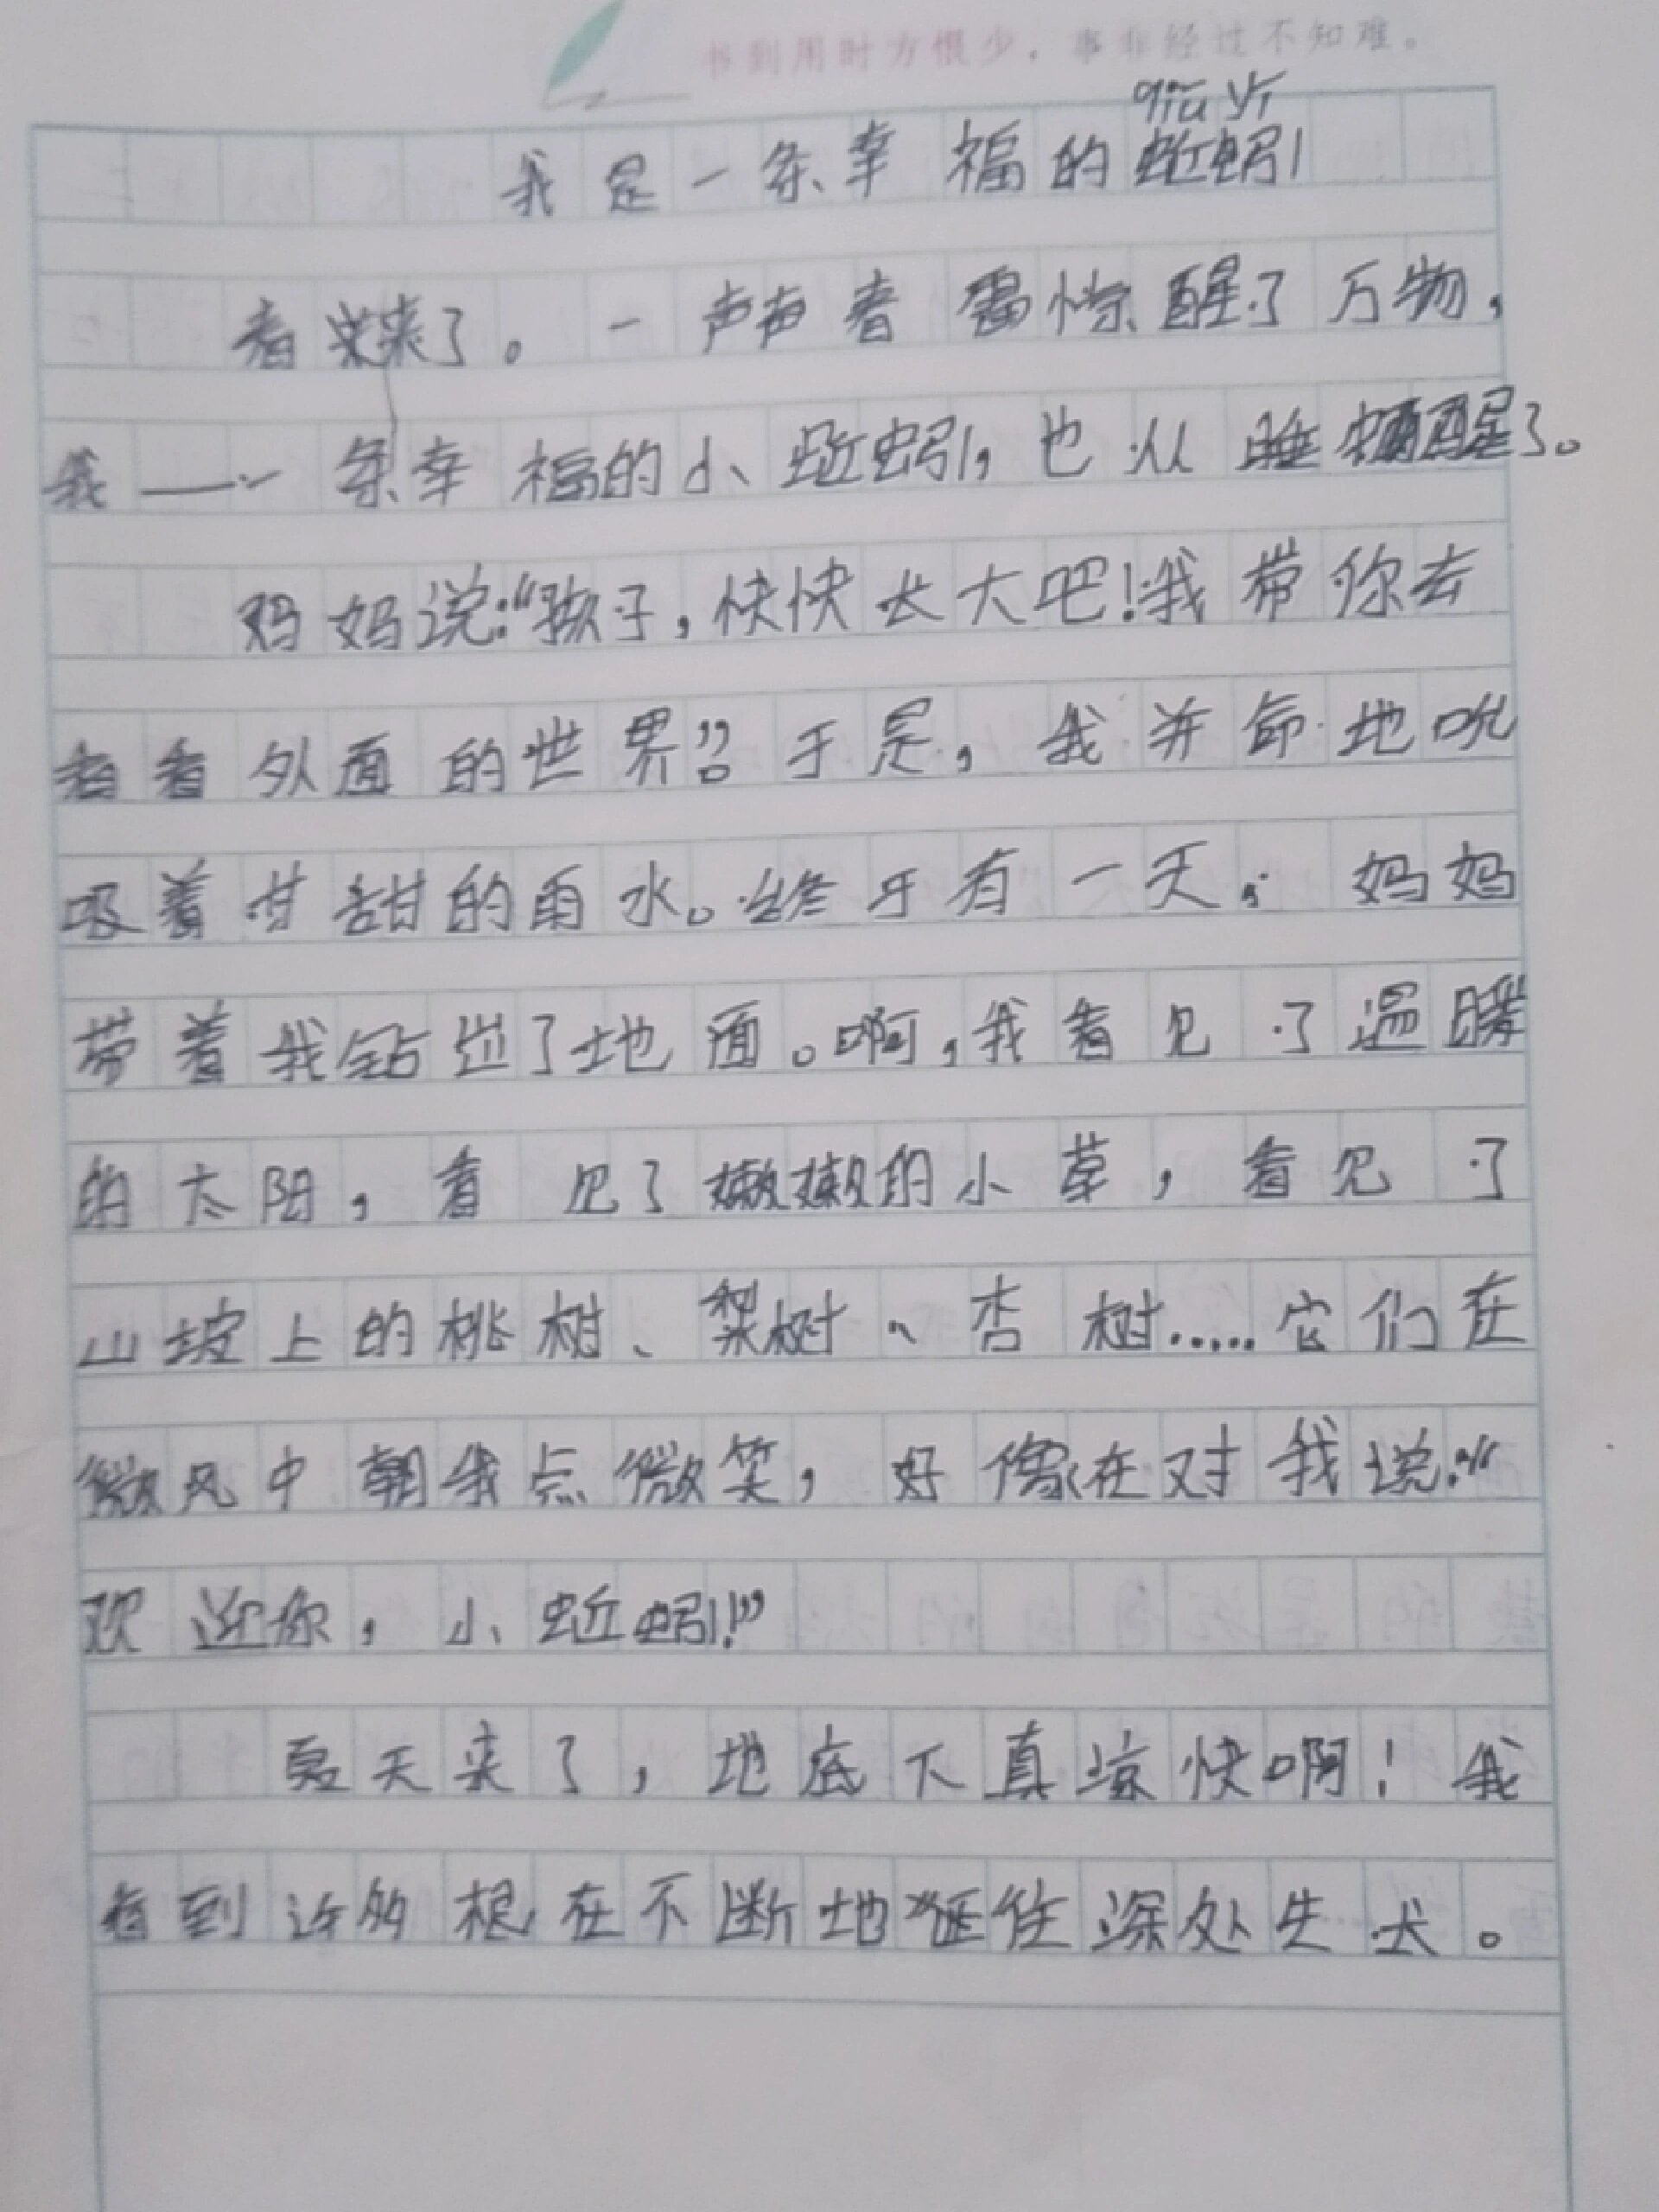 书到用时方恨少,事非经过不知难。
qiū yǐ
我是一条幸福的蚯蚓
春天来了。一声声春雷惊醒了万物,
我——一条幸福的小蚯蚓,也从睡梦中醒了。
妈妈说:“孩子,快快长大吧!我带你去
看看外面的世界”。于是,我并命地吮
吸着甘甜的雨水。终于有一天,妈妈
带着我钻出了地面。啊,我看见了温暖
的太阳,看见了嫩嫩的小草,看见了
山坡上的桃树、梨树、杏树……它们在
微风中朝我点微笑,好像在对我说:“
欢迎你,小蚯蚓!”
夏天来了,地底下真凉快啊!我
看到许多根在不断地延往深处生长。